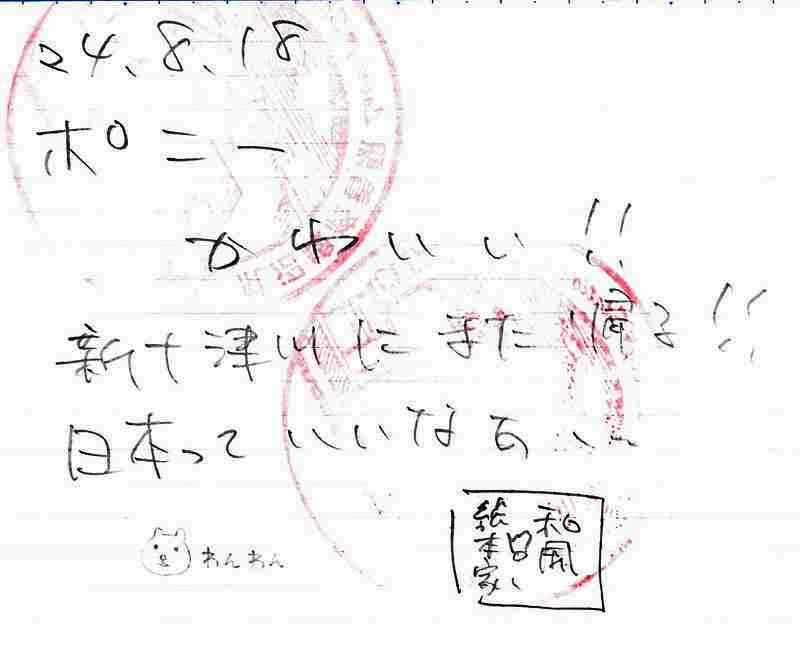 24.8.18
ポニー
かわいい!!
新十津川にまた帰る!!
日本っていいなあ
わんわん
和風
絵本家